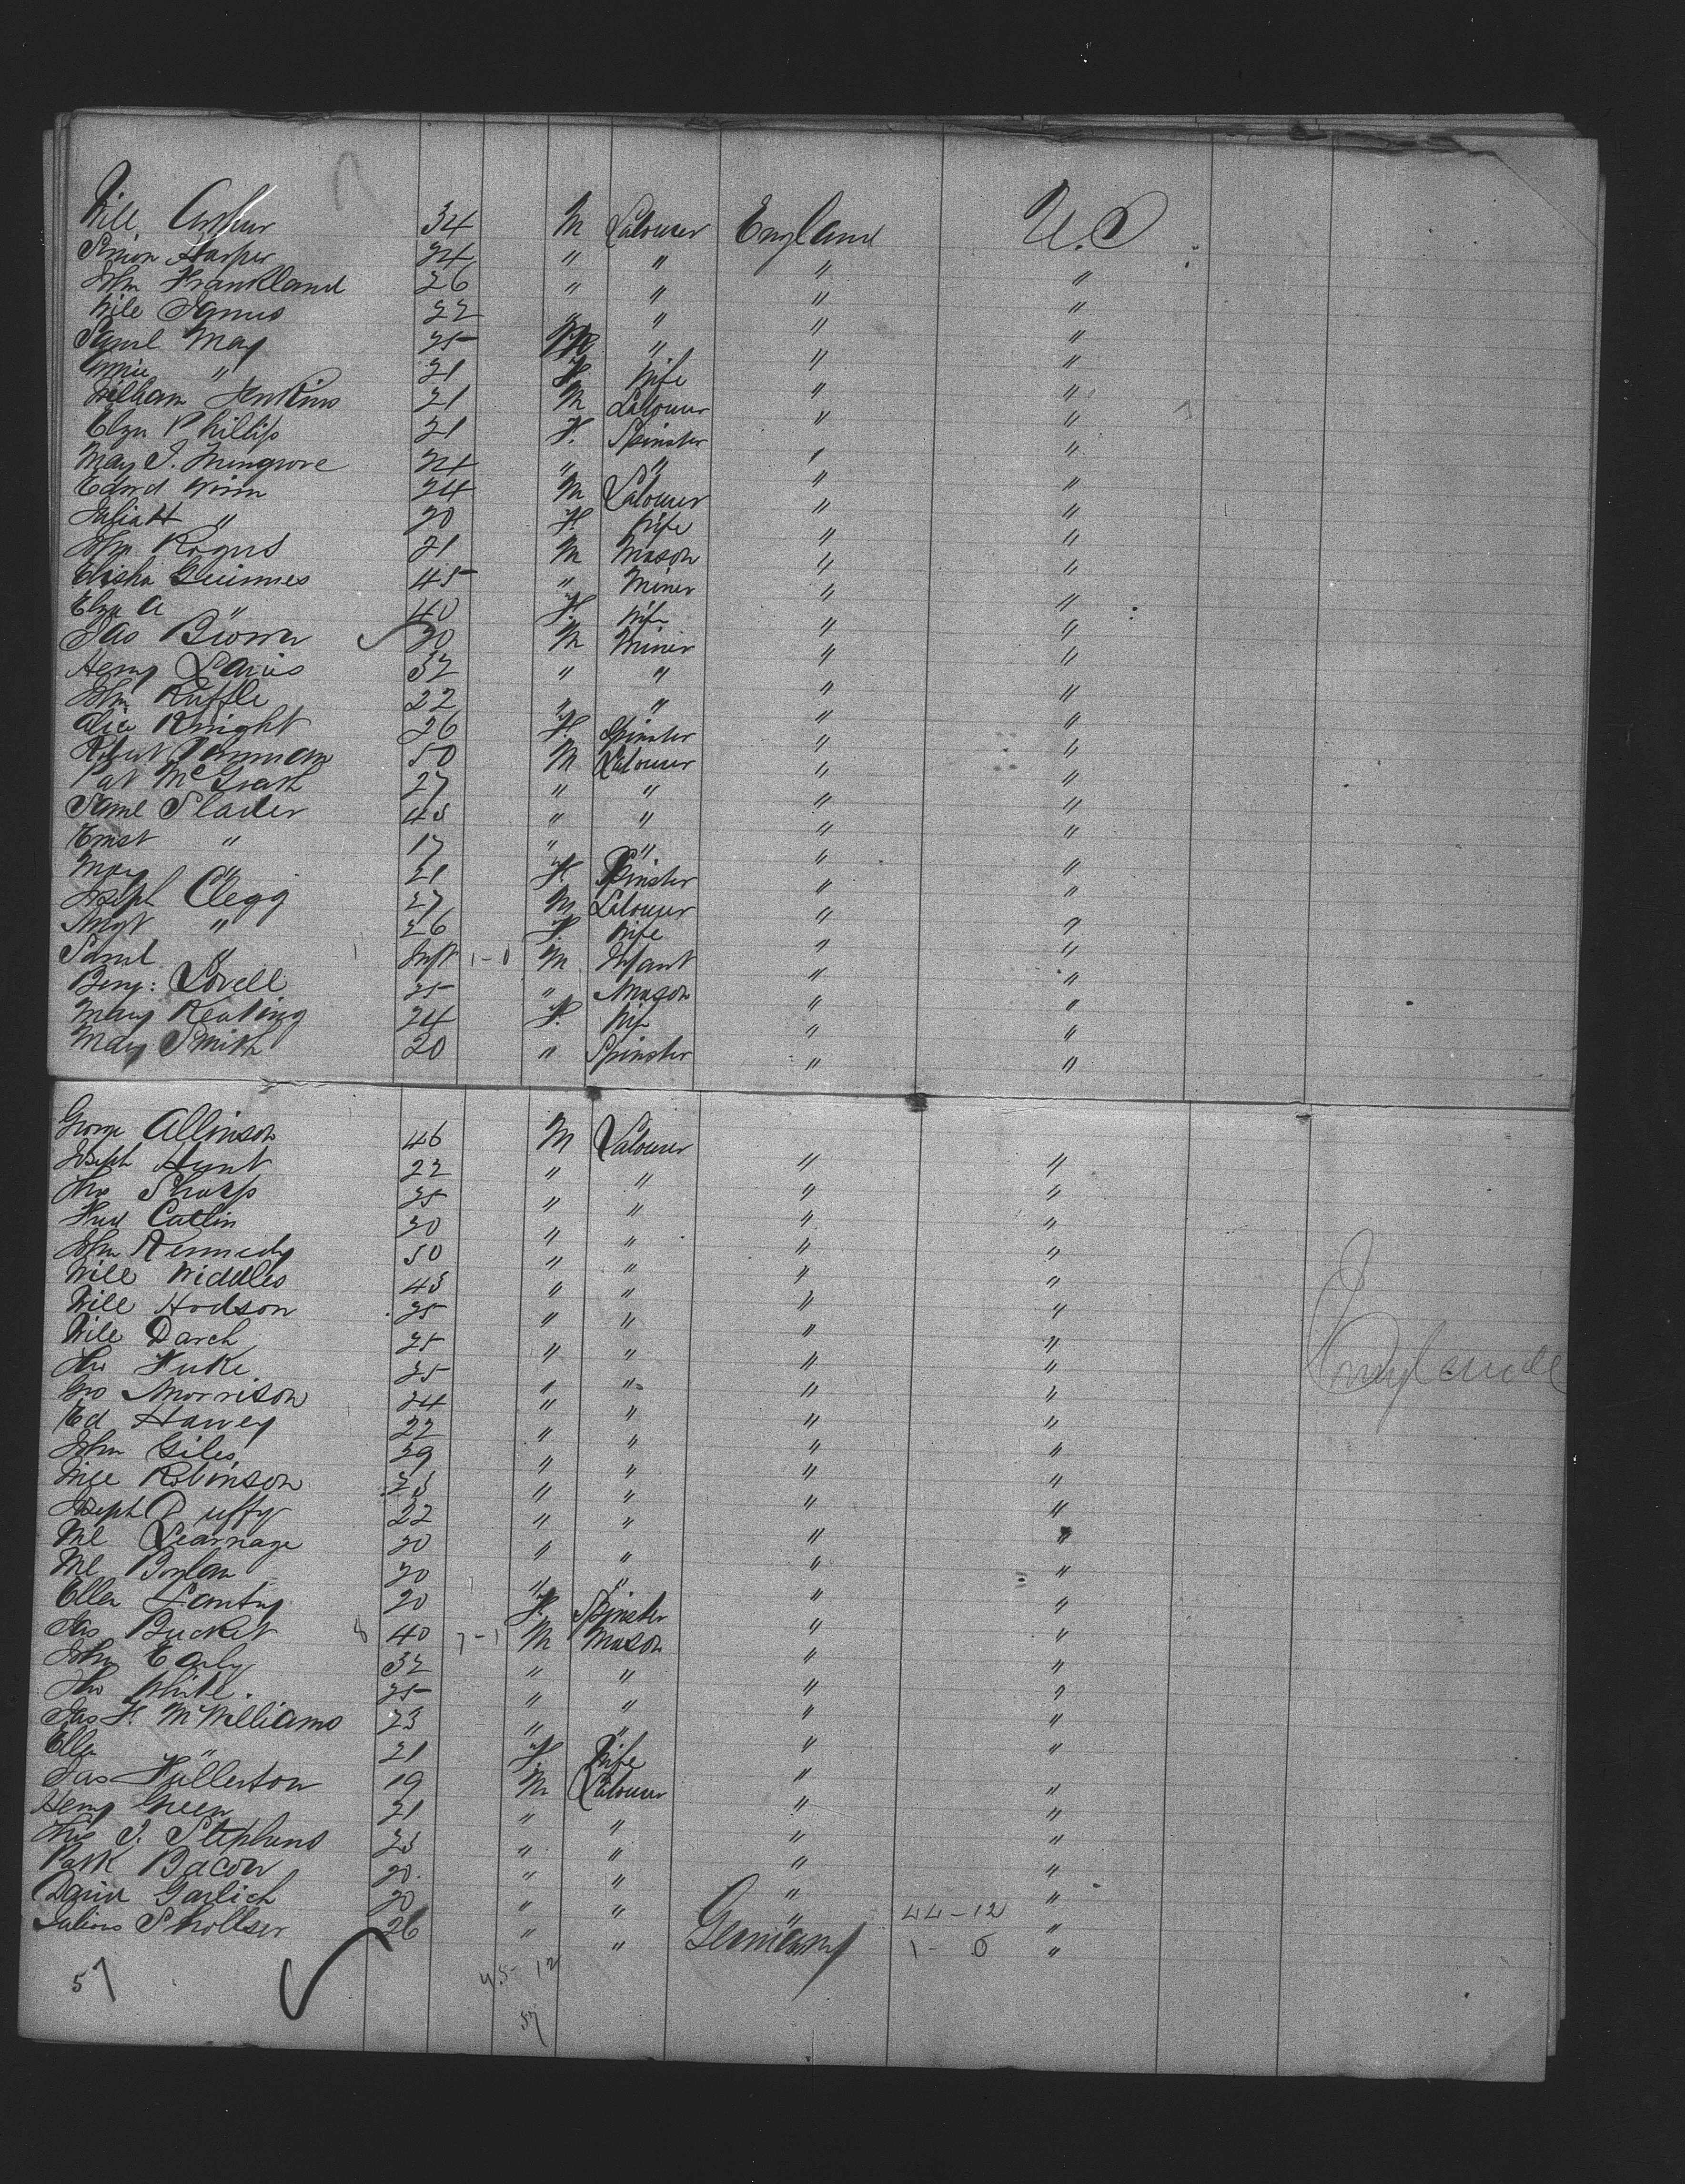 Will Arthur 34 M Labourer England U.S
Simon Harper 24 " " " "
John Frankland 26 " " " "
Will James 22 " " " "
Saml May 25 M " " "
Annie " 21 F. Wife " "
William Jenkins 21 M Labourer " "
Elza Phillips 21 F. Spinster " "
Mary J. 24 " " " "
Edwd Winn 24 M Labourer " "
Julia H " 20 F. Wife " "
John Rogers 21 M Mason " "
Elisha 45 " Miner " "
Elza A " 40 F. Wife " "
Jas Brown 20 M Miner " "
Henry Davis 32 " " " "
John Ruffle 22 " " " "
Alice Knight 26 F. Spinster " "
Robert 50 M Labourer " "
Pat McGrath 27 " " " "
Saml Slader 45 " " " "
Ernst " 17 " " " "
Mary " 21 F. Spinster " "
Joseph Clegg 27 M Labourer " "
Margt " 26 F. Wife " "
Saml " 1 Inft 1-0 M Infant " "
Benj: Lovell 25 " Mason " "
Mary Keating 24 F. Wife " "
Mary Smith 20 " Spinster " "
George Allinson 46 M Labourer " "
Joseph Hunt 22 " " " "
Tho Sharp 25 " " " "
Fred Catlin 20 " " " "
John Kennedy 50 " " " "
Will Widdles 45 " " " "
Will Hodson 25 " " " "
Will Darch 25 " " " "
Tho Fuke 25 " " " "
Geo Morrison 24 " " " "
Ed Harvey 22 " " " "
John Giles 29 " " " "
Will Robinson 23 " " " "
Joseph Duffy 22 " " " "
Ml 20 " " " "
Ml Boylan 20 " " " "
Ellen 20 F. Spinster " "
Jas Bucket 8 40 7-1 M Mason " "
John Early 32 " " " "
Tho White 25 " " " "
Jas F. McWilliams 23 " " " "
Ellen " 21 F. Wife " "
Jas Fullerton 19 M Labourer " "
Henry Green 21 " " " "
Tho J. Stephens 23 " " " "
Patk Bacon 20 " " " "
David Garlich 20 " " " 44-12 "
Julius Shollser 26 " " Germany 1-0 "
57 45-12
57